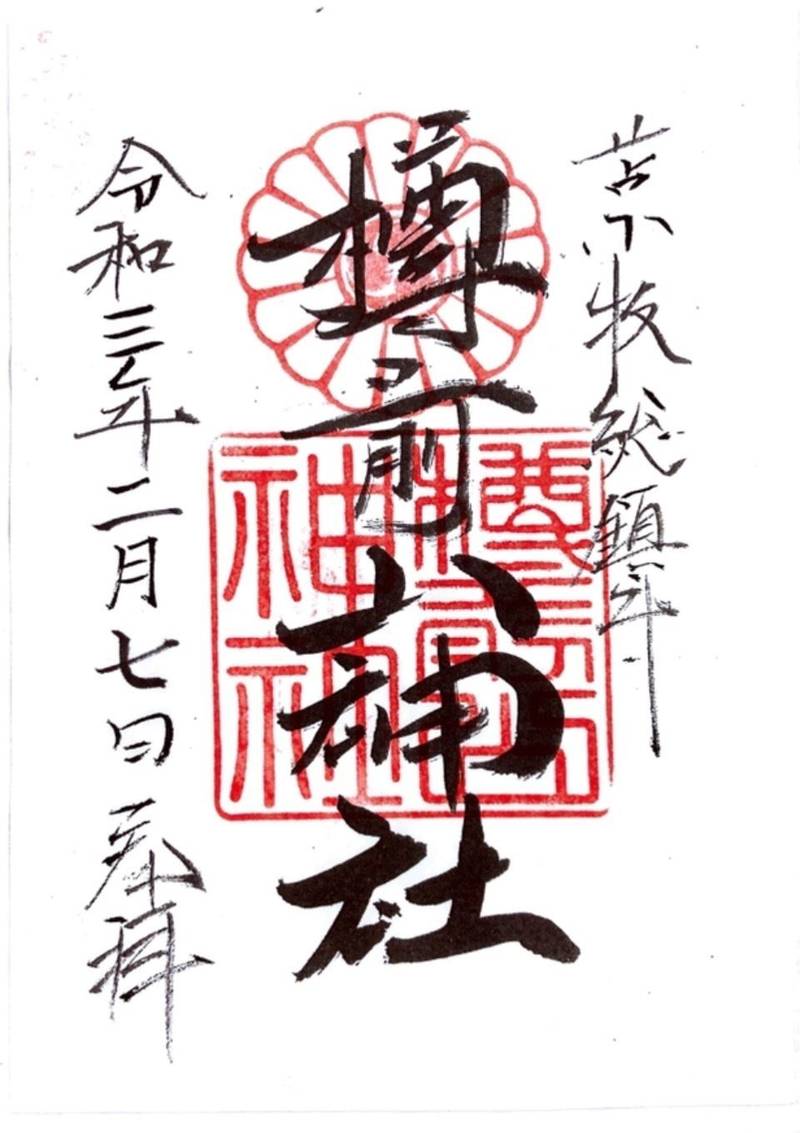 苫小牧総鎮守
樽前山神社
令和三年二月七日 奉拝